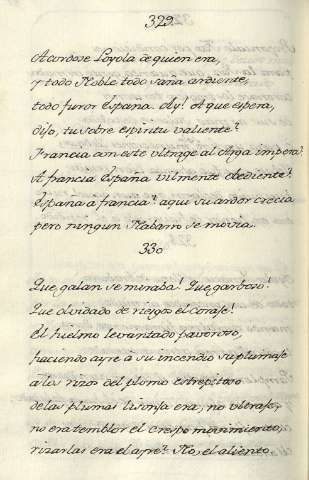 329.
Acordose Loyola de quien era,
y todo Noble todo saña ardiente,
todo furor España. Ay! A que espera,
dijo, tu sobre espiritu valiente?
Francia con este vltrage al Arga impera?
A francia España vilmente obediente?
España a francia? aqui su ardor crecia
pero ningun Nabarro se movia.
330
Que galan se miraba! Que garboso!
Que olvidado de riesgos el coraje!
El hielmo levantado pavoroso,
haciendo ayre à su incendio su plumaje
a los rizos del plomo estrepitoso
de las plumas lisonja era, no vltraje,
no era temblor el crespo movimiento,
rizarlas era el ayre? No, el aliento